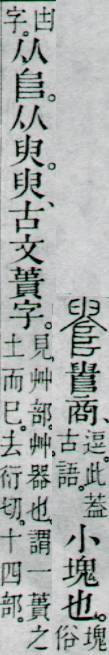 商、逗。此葢古語。小塊也。塊俗
凷字。从𠂤。从臾。臾、古文蕢字。見艸部。艸器也。謂一蕢之土而巳。去衍切。十四部。